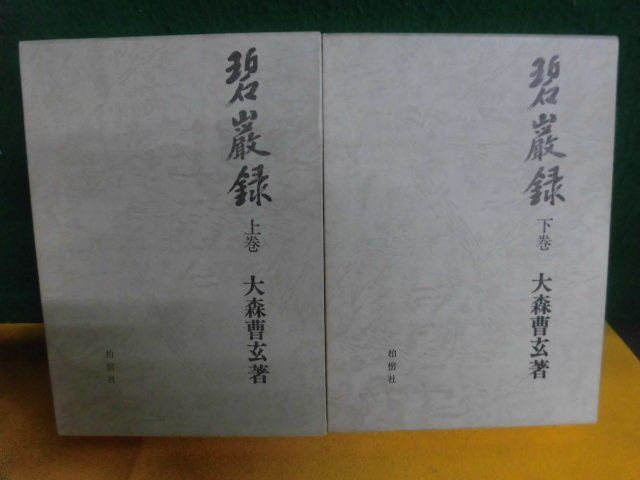 碧巌録
上巻
大森曹玄著
柏樹社
碧巌録
下巻
大森曹玄著
柏樹社